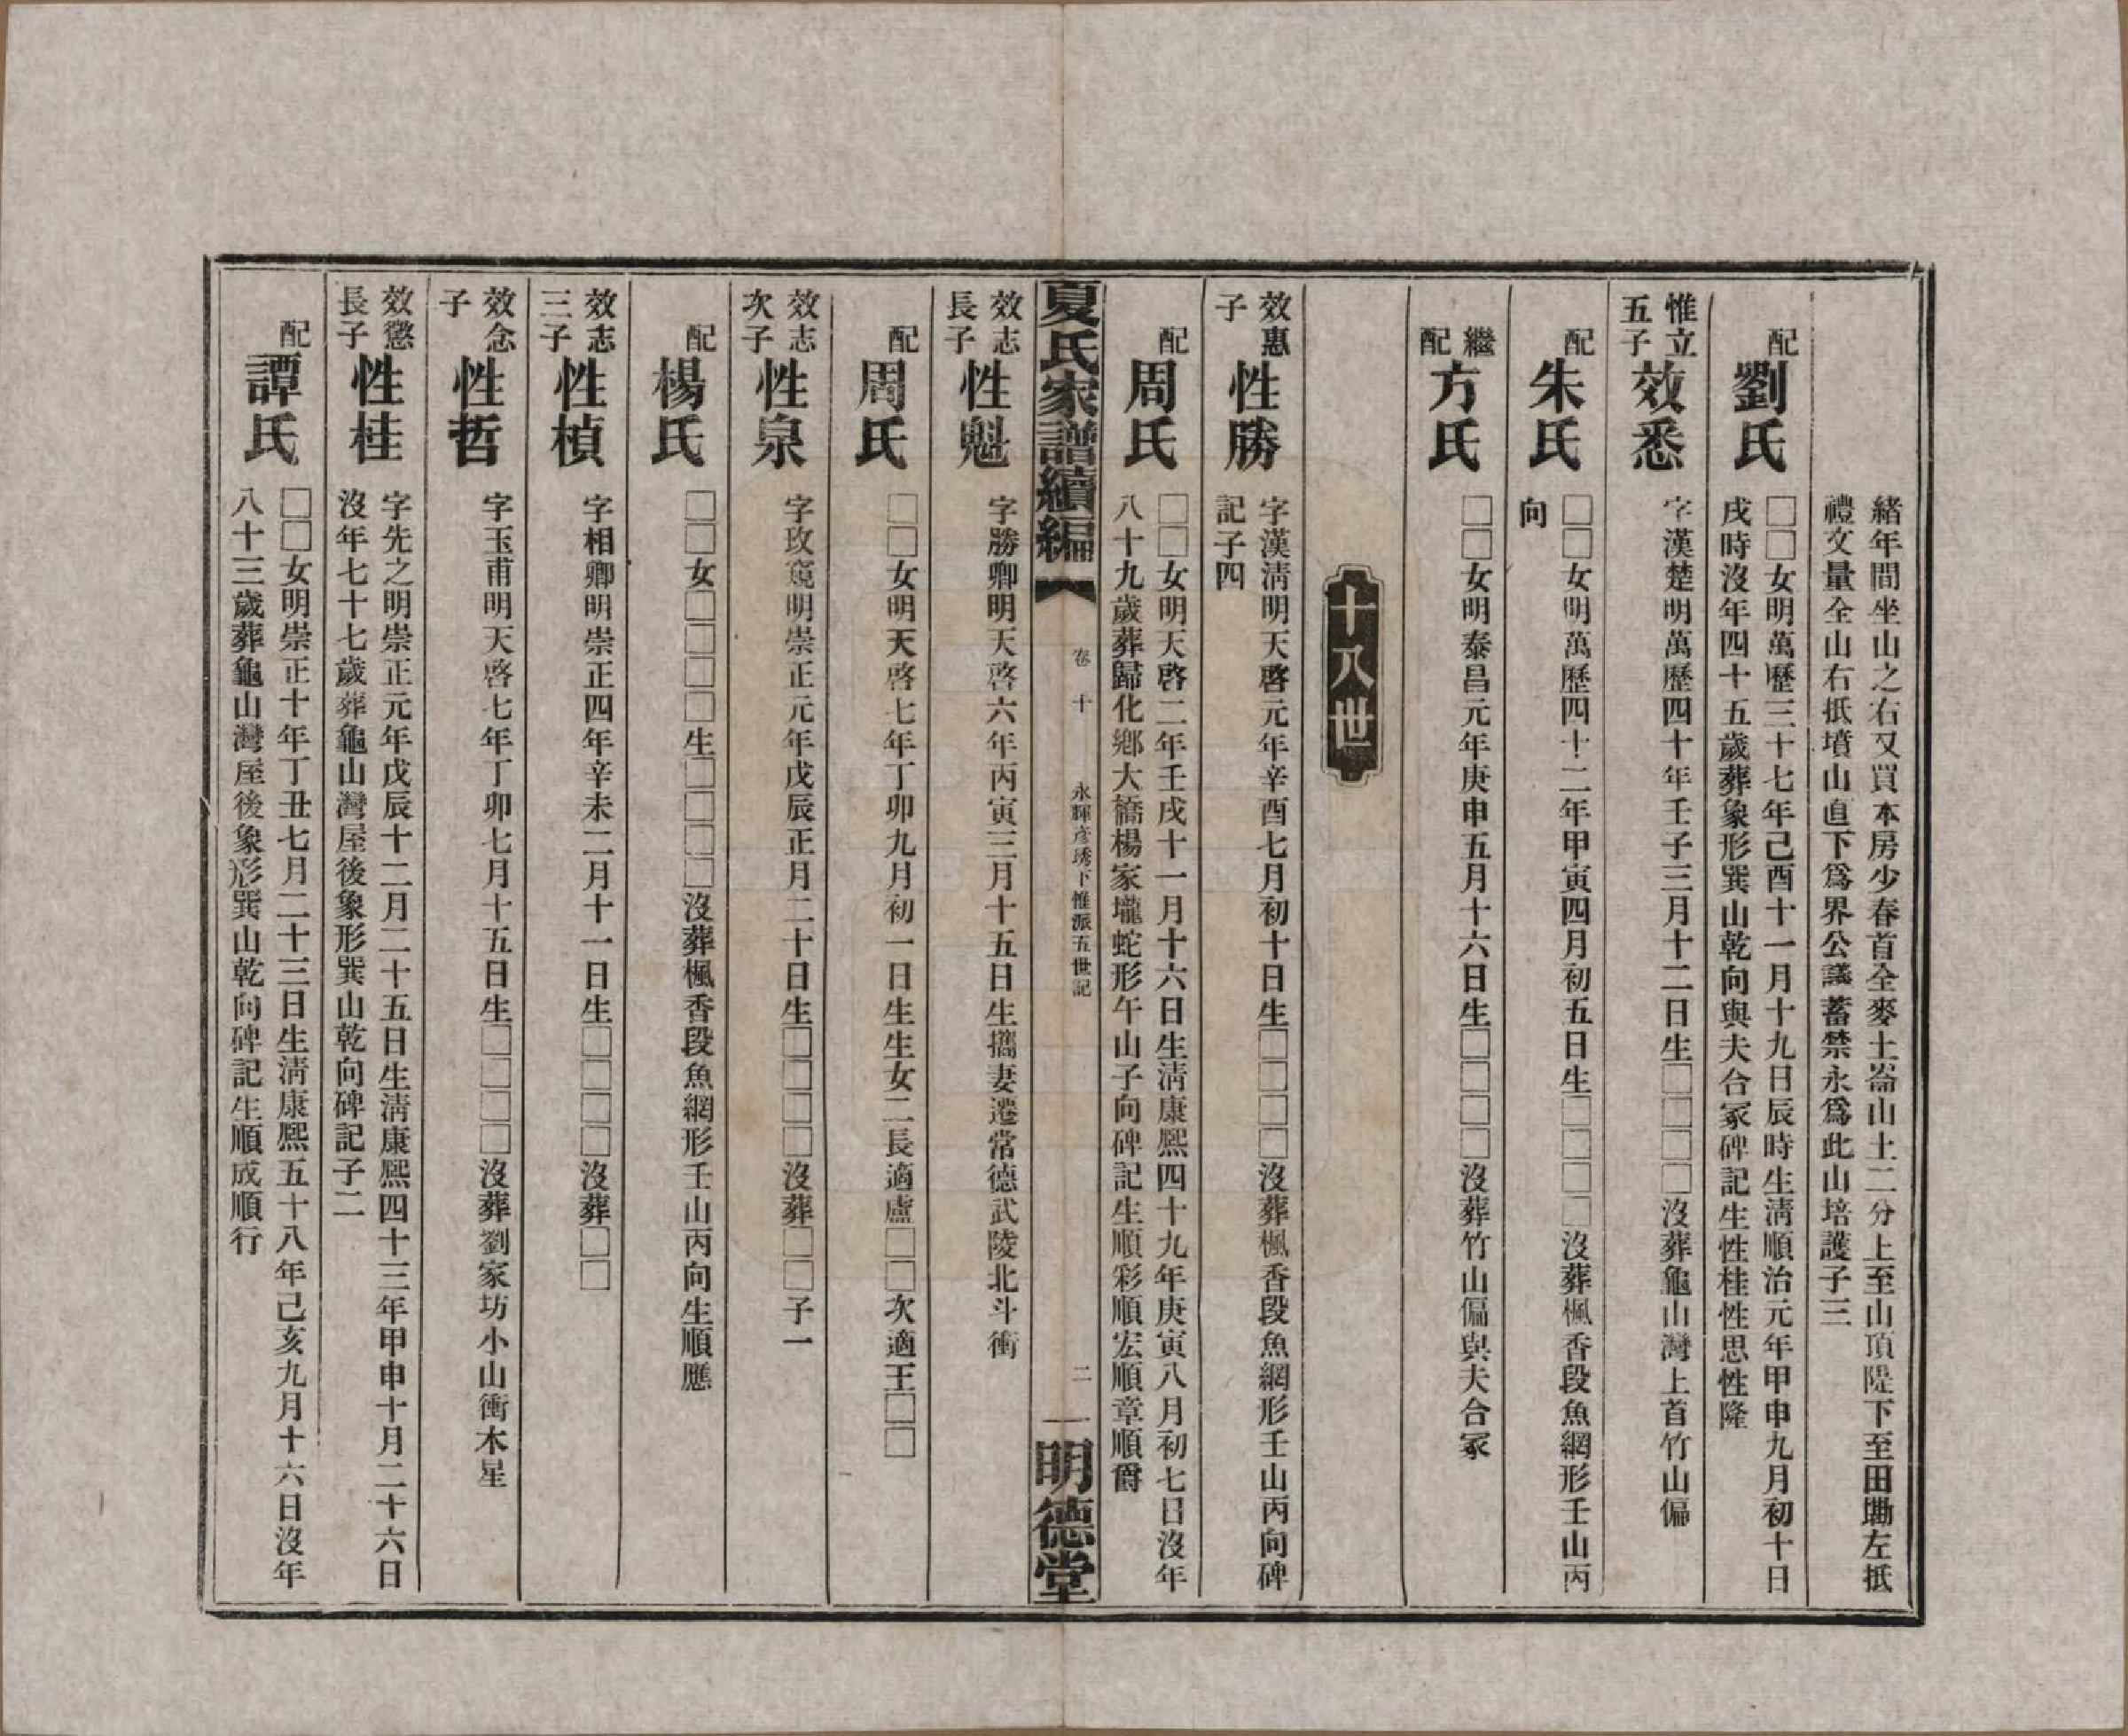 緒年間坐山之右又買本房少春首全麥土崙山土二分上至山頂隄下至田墈左抵
禮文量全山右抵墳山直下爲界公議蓄禁永爲此山培護子三
配
劉氏
□□女明萬歷三十七年己酉十一月十九日辰時生清順治元年甲申九月初十日
戌時沒年四十五歲葬象形巽山乾向與夫合冢碑記生性桂性思性隆
惟立
五子
效悉
字漢楚明萬歷四十年壬子三月十二日生□□□□沒葬龜山灣上首竹山偏
配
朱氏
□□女明萬歷四十二年甲寅四月初五日生□□□□沒葬楓香段魚網形壬山丙
向
繼
配
方氏
□□女明泰昌元年庚申五月十六日生□□□□沒葬竹山偏與夫合冢
十八世
效惠
子
性勝
字漢清明天啓元年辛酉七月初十日生□□□□沒葬楓香段魚網形壬山丙向碑
記子四
配
周氏
□□女明天啓二年壬戌十一月十六日生清康熙四十九年庚寅八月初七日沒年
八十九歲葬歸化鄉大橋楊家壠蛇形午山子向碑記生順彩順宏順章順爵
夏氏家譜續編
卷十
永輝彥琇下惟派五世記
二
明德堂
效志
長子
性魁
字勝卿明天啓六年丙寅三月十五日生攜妻遷常德武陵北斗衝
配
周氏
□□女明天啓七年丁卯九月初一日生生女二長適盧□□次適王□□
效志
次子
性泉
字玫寬明崇正元年戊辰正月二十日生□□□□沒葬□□子一
配
楊氏
□□女□□□□生□□□□沒葬楓香段魚網形壬山丙向生順應
效志
三子
性楨
字相卿明崇正四年辛未二月十一日生□□□□沒葬□□
效念
子
性哲
字玉甫明天啓七年丁卯七月十五日生□□□□沒葬劉家坊小山衝木星
效懲
長子
性桂
字先之明崇正元年戊辰十二月二十五日生清康熙四十三年甲申十月二十六日
沒年七十七歲葬龜山灣屋後象形巽山乾向碑記子二
配
譚氏
□□女明崇正十年丁丑七月二十三日生清康熙五十八年己亥九月十六日沒年
八十三歲葬龜山灣屋後象形巽山乾向碑記生順成順行